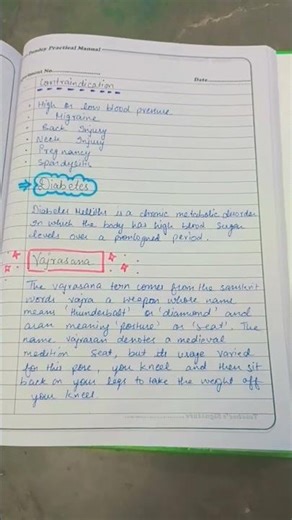 Practical Manual
No.
Date
Contraindication
High or low blood pressure
Migraine
Back Injury
Neck Injury
Pregnancy
Spondylitis
Diabetes
Diabetes Mellitus is a chronic metabolic disorder
in which the body has high blood sugar
levels over a prolonged period.
Vajrasana
The vajrasana term comes from the sanskrit
words vajra a weapon whose name
mean 'thunderbolt' or 'diamond' and
asan meaning 'posture' or 'seat'. The
name vajrasan denotes a medieval
medition seat, but its usage varied
for this pose, you kneel and then sit
back on your legs to take the weight off
your knees